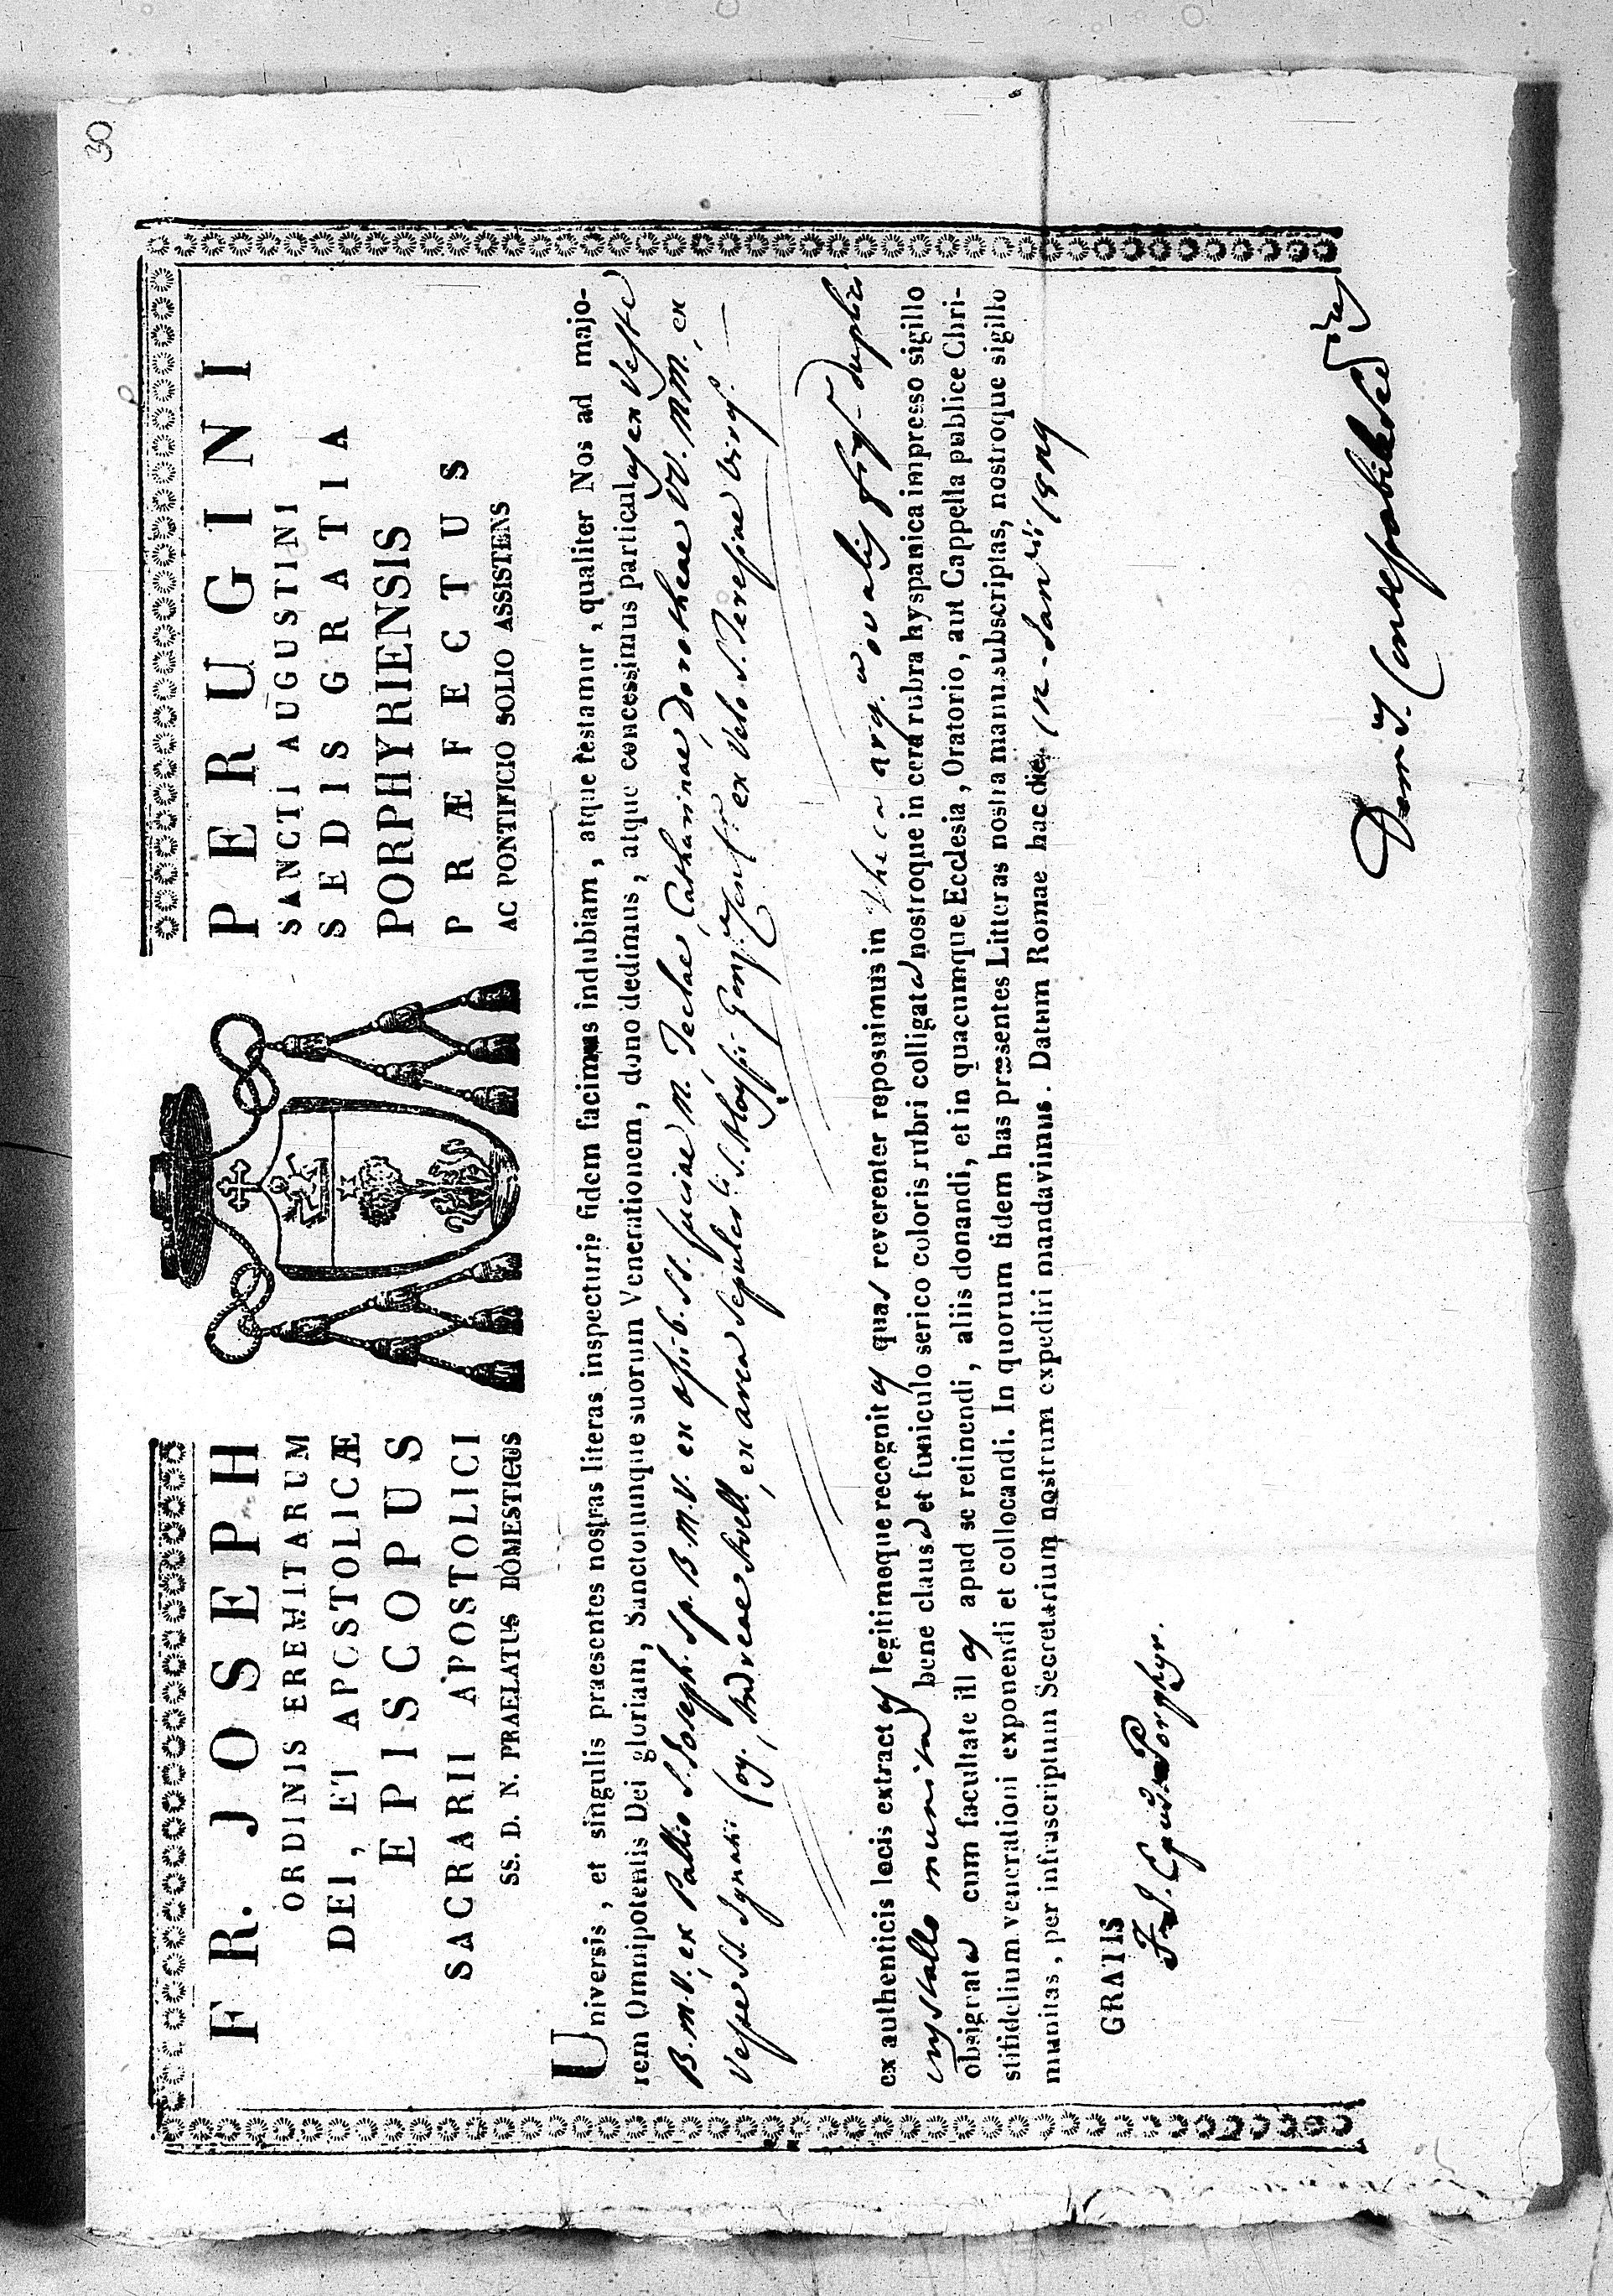 30
FR. JOSEPH PERUGINI
ORDINIS EREMITARUM SANCTI AUGUSTINI
DEI, ET APOSTOLICÆ SEDIS GRATIA
EPISCOPUS PORPHYRIENSIS
SACRARII APOSTOLICI PRÆFECTUS
SS. D. N. PRAELATUS DOMESTICUS AC PONTIFICIO SOLIO ASSISTENS
Universis, et singulis praesentes nostras literas inspecturis fidem facimus indubiam, atque testamur, qualiter Nos ad majo-
rem Omnipotentis Dei gloriam, Sanctorumque suorum Venerationem, dono dedimus, atque concessimus particulas ex Veste
B. M. V., ex Pallio S. Joseph. Sp. B. M. V. ex ossib. SS. Luciae M. Teclae, Catharinae, Dorotheae VV. MM., ex
Veste SS. Ignatii Loy., Andreae Avell., ex arca Sepulcri S. Aloysii Gonz. ex Velo S. Teresiae Virg.
ex authenticis locis extractas legitimeque recognitas quas reverenter reposuimus in theca arg. ovalis fig. duplici
crystallo munita bene clausa et funiculo serico coloris rubri colligata nostroque in cera rubra hyspanica impresso sigillo
obsigrata cum facultate illas apud se retinendi, aliis donandi, et in quacumque Ecclesia, Oratorio, aut Cappella publice Chri-
stifidelium venerationi exponendi et collocandi. In quorum fidem has præsentes Litteras nostra manu subscriptas, nostroque sigillo
munitas, per infrascriptum Secretarium nostrum expediri mandavimus. Datum Romae hac die 12 Januarii
GRATIS
Fr. J. Epus Porphyr.